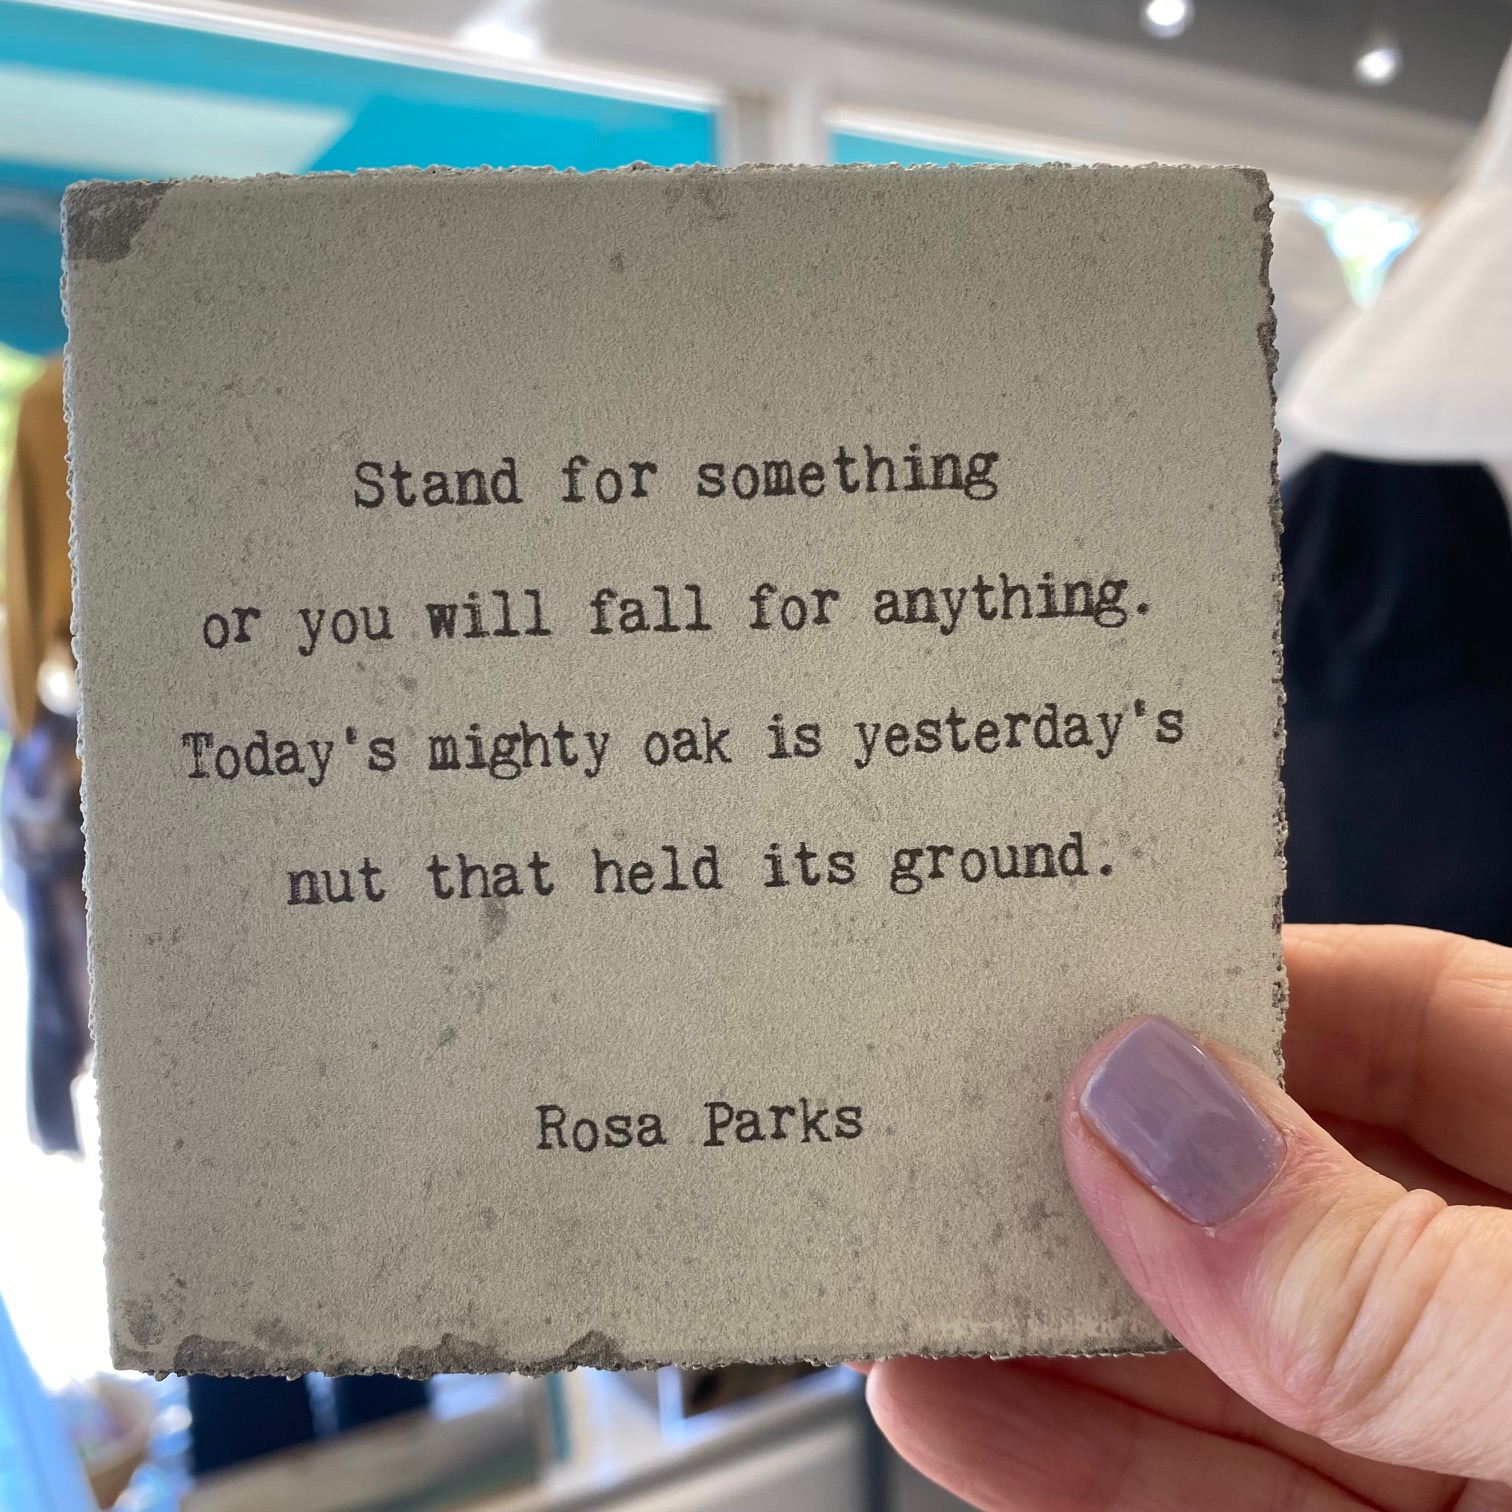 Stand for something
or you will fall for anything.
Today's mighty oak is yesterday's
nut that held its ground.
Rosa Parks